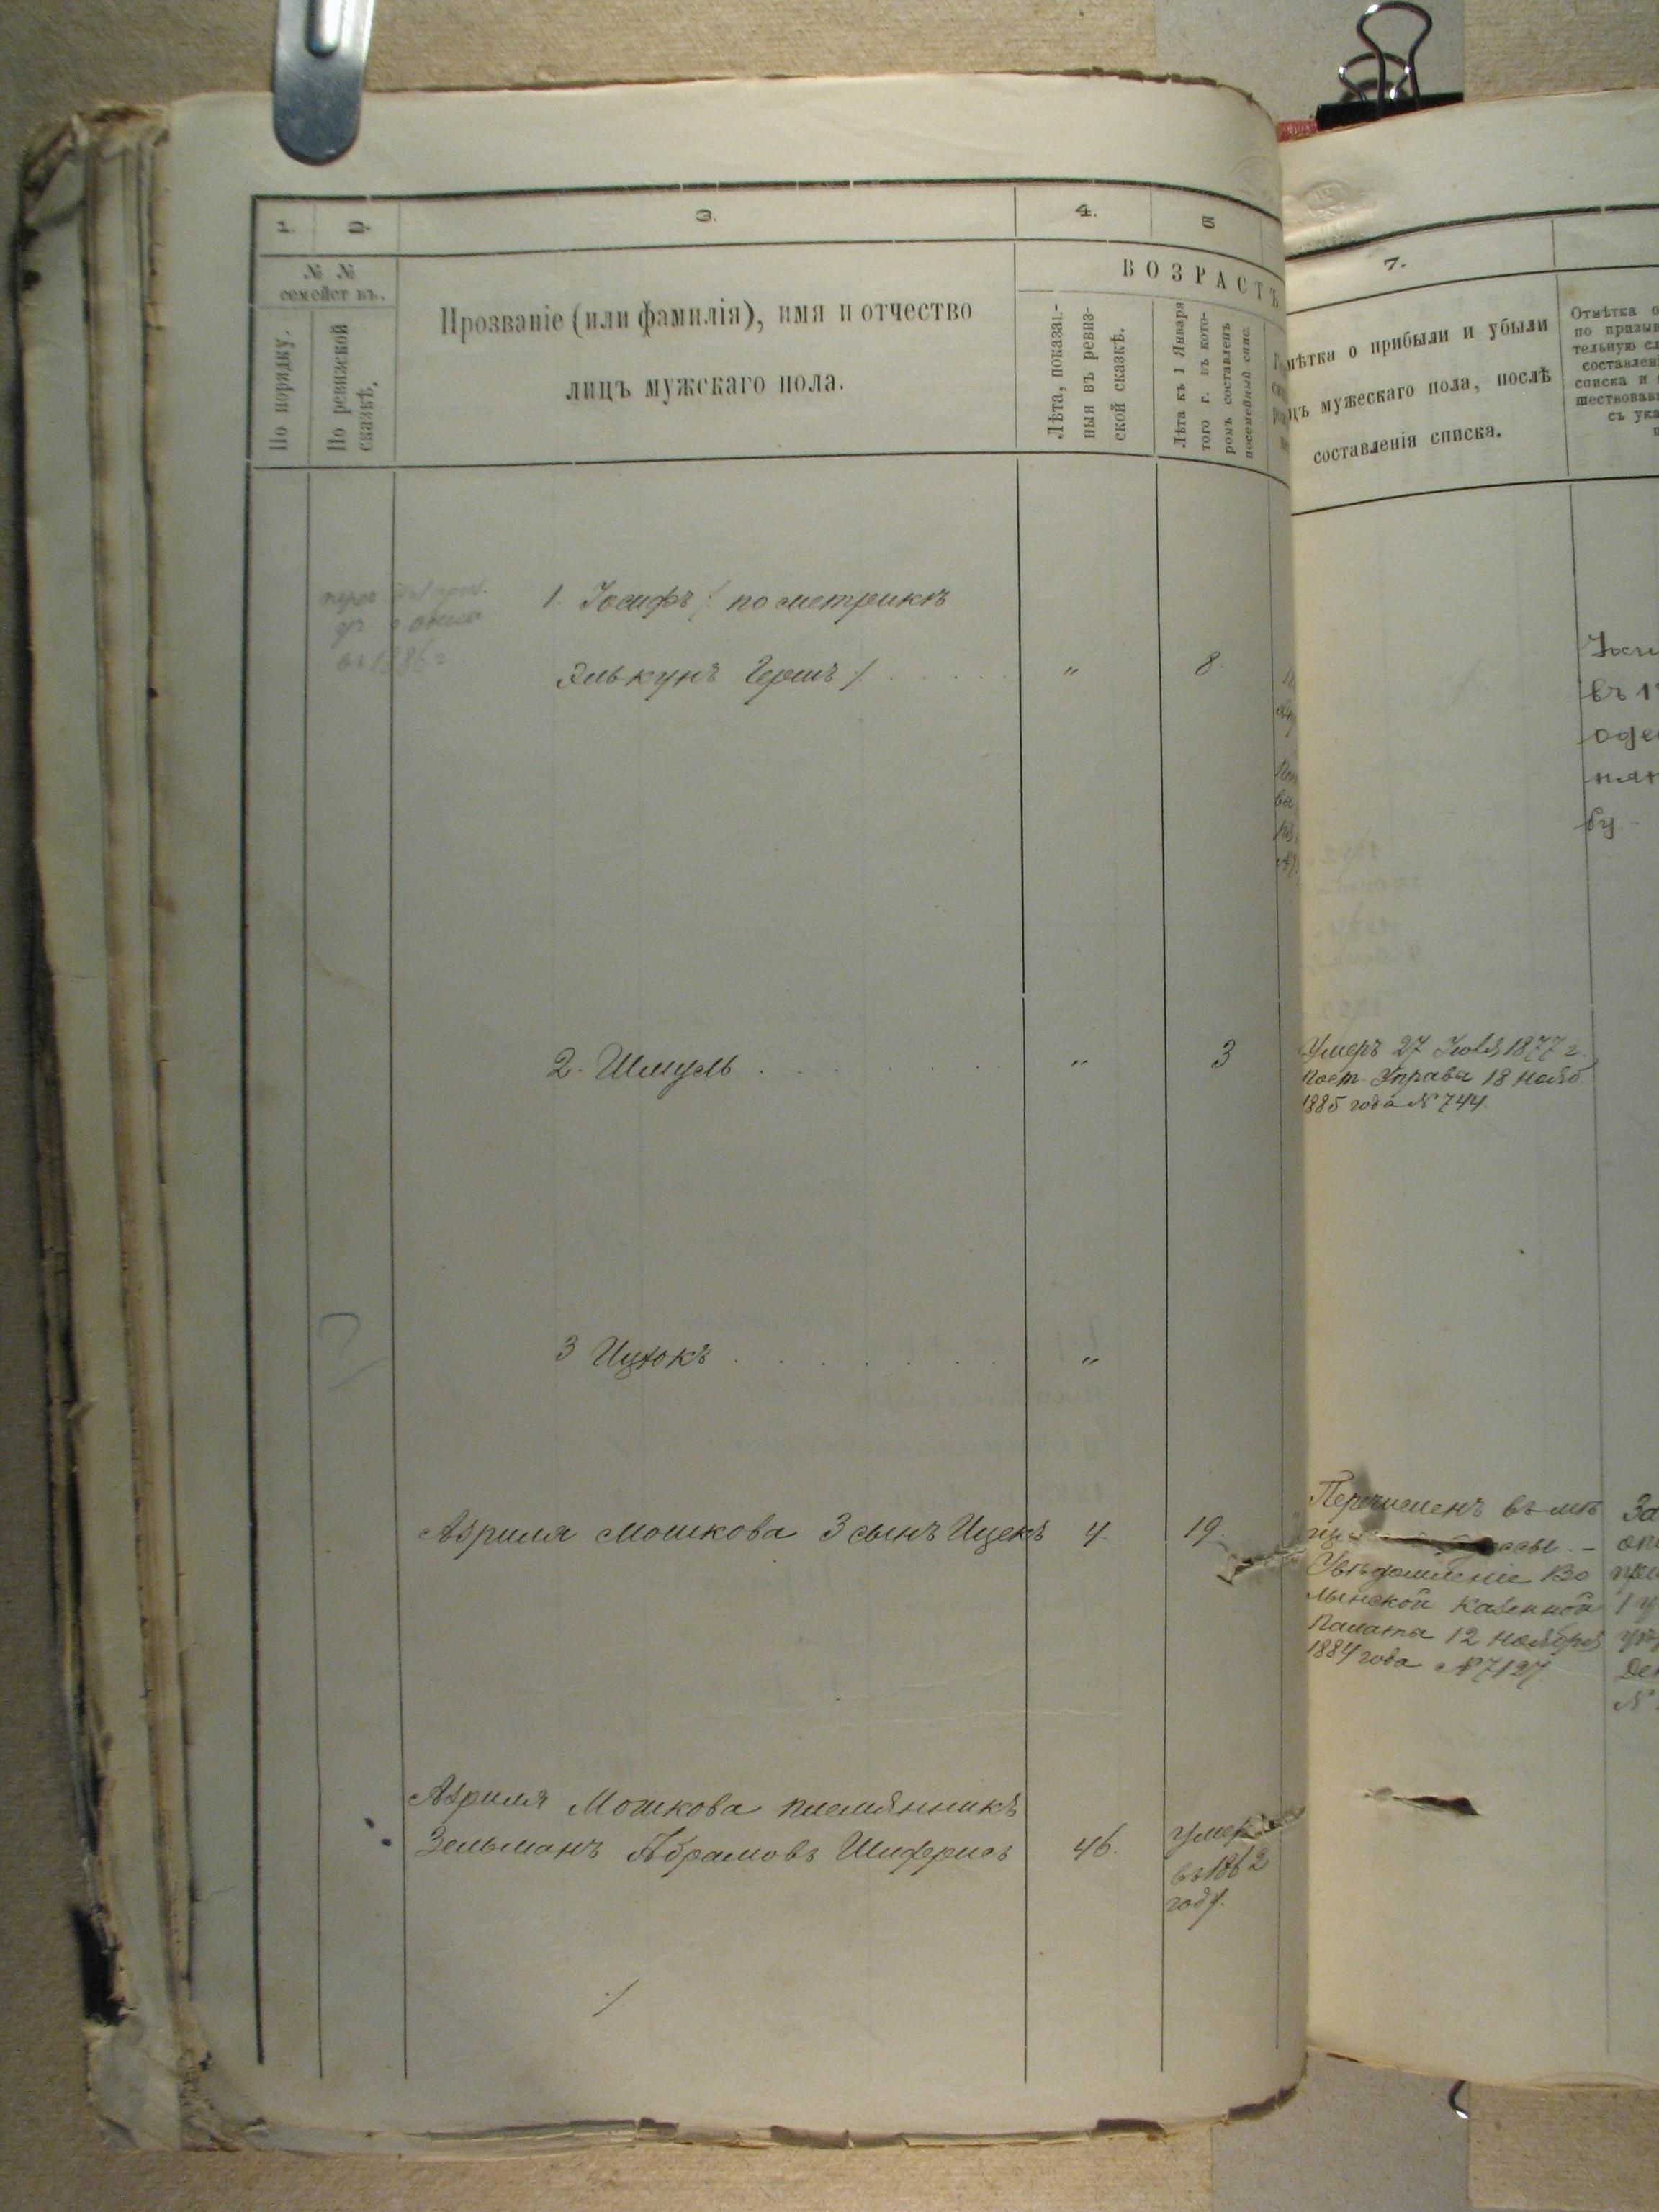 1. 2. 3. 4. 5
№ №
семействъ.
По порядку.
По ревизской
сказкѣ.
Прозваніе (или фамилія), имя и отчество
лицъ мужскаго пола.
ВОЗРАСТЪ
Лѣта, показан-
ныя въ ревиз-
ской сказкѣ.
Лѣта къ 1 Января
того г. въ кото-
ромъ составленъ
посемейный спис.
1. Іосифъ /: по метрикѣ
Элькунъ Гершъ :/ . . . . . „ 8.
2. Шмуль . . . . . . . . „ 3
3 Ицхокъ . . . . . . . . „
Азриля Мошкова 3 сынъ Ицекъ 4. 19.
Азриля Мошкова племянникъ
Зельманъ Абрамовъ Шиферисъ 46. умеръ
въ 1862
году.
7.
мѣтка о прибыли и убыли
цъ мужескаго пола, послѣ
составленія списка.
Отмѣтка о
по призыв
тельную сл
составлен
списка и
шествовав
съ ука
въ 1
оде
нян
бу
Умеръ 27 Іюля 1877 г.
пост. Управы 18 нояб.
1885 года № 744.
Перечисленъ въ мѣ За
Увѣдомленіе Во
лынской Казенной
Палаты 12 ноября
1884 года № 7127
№